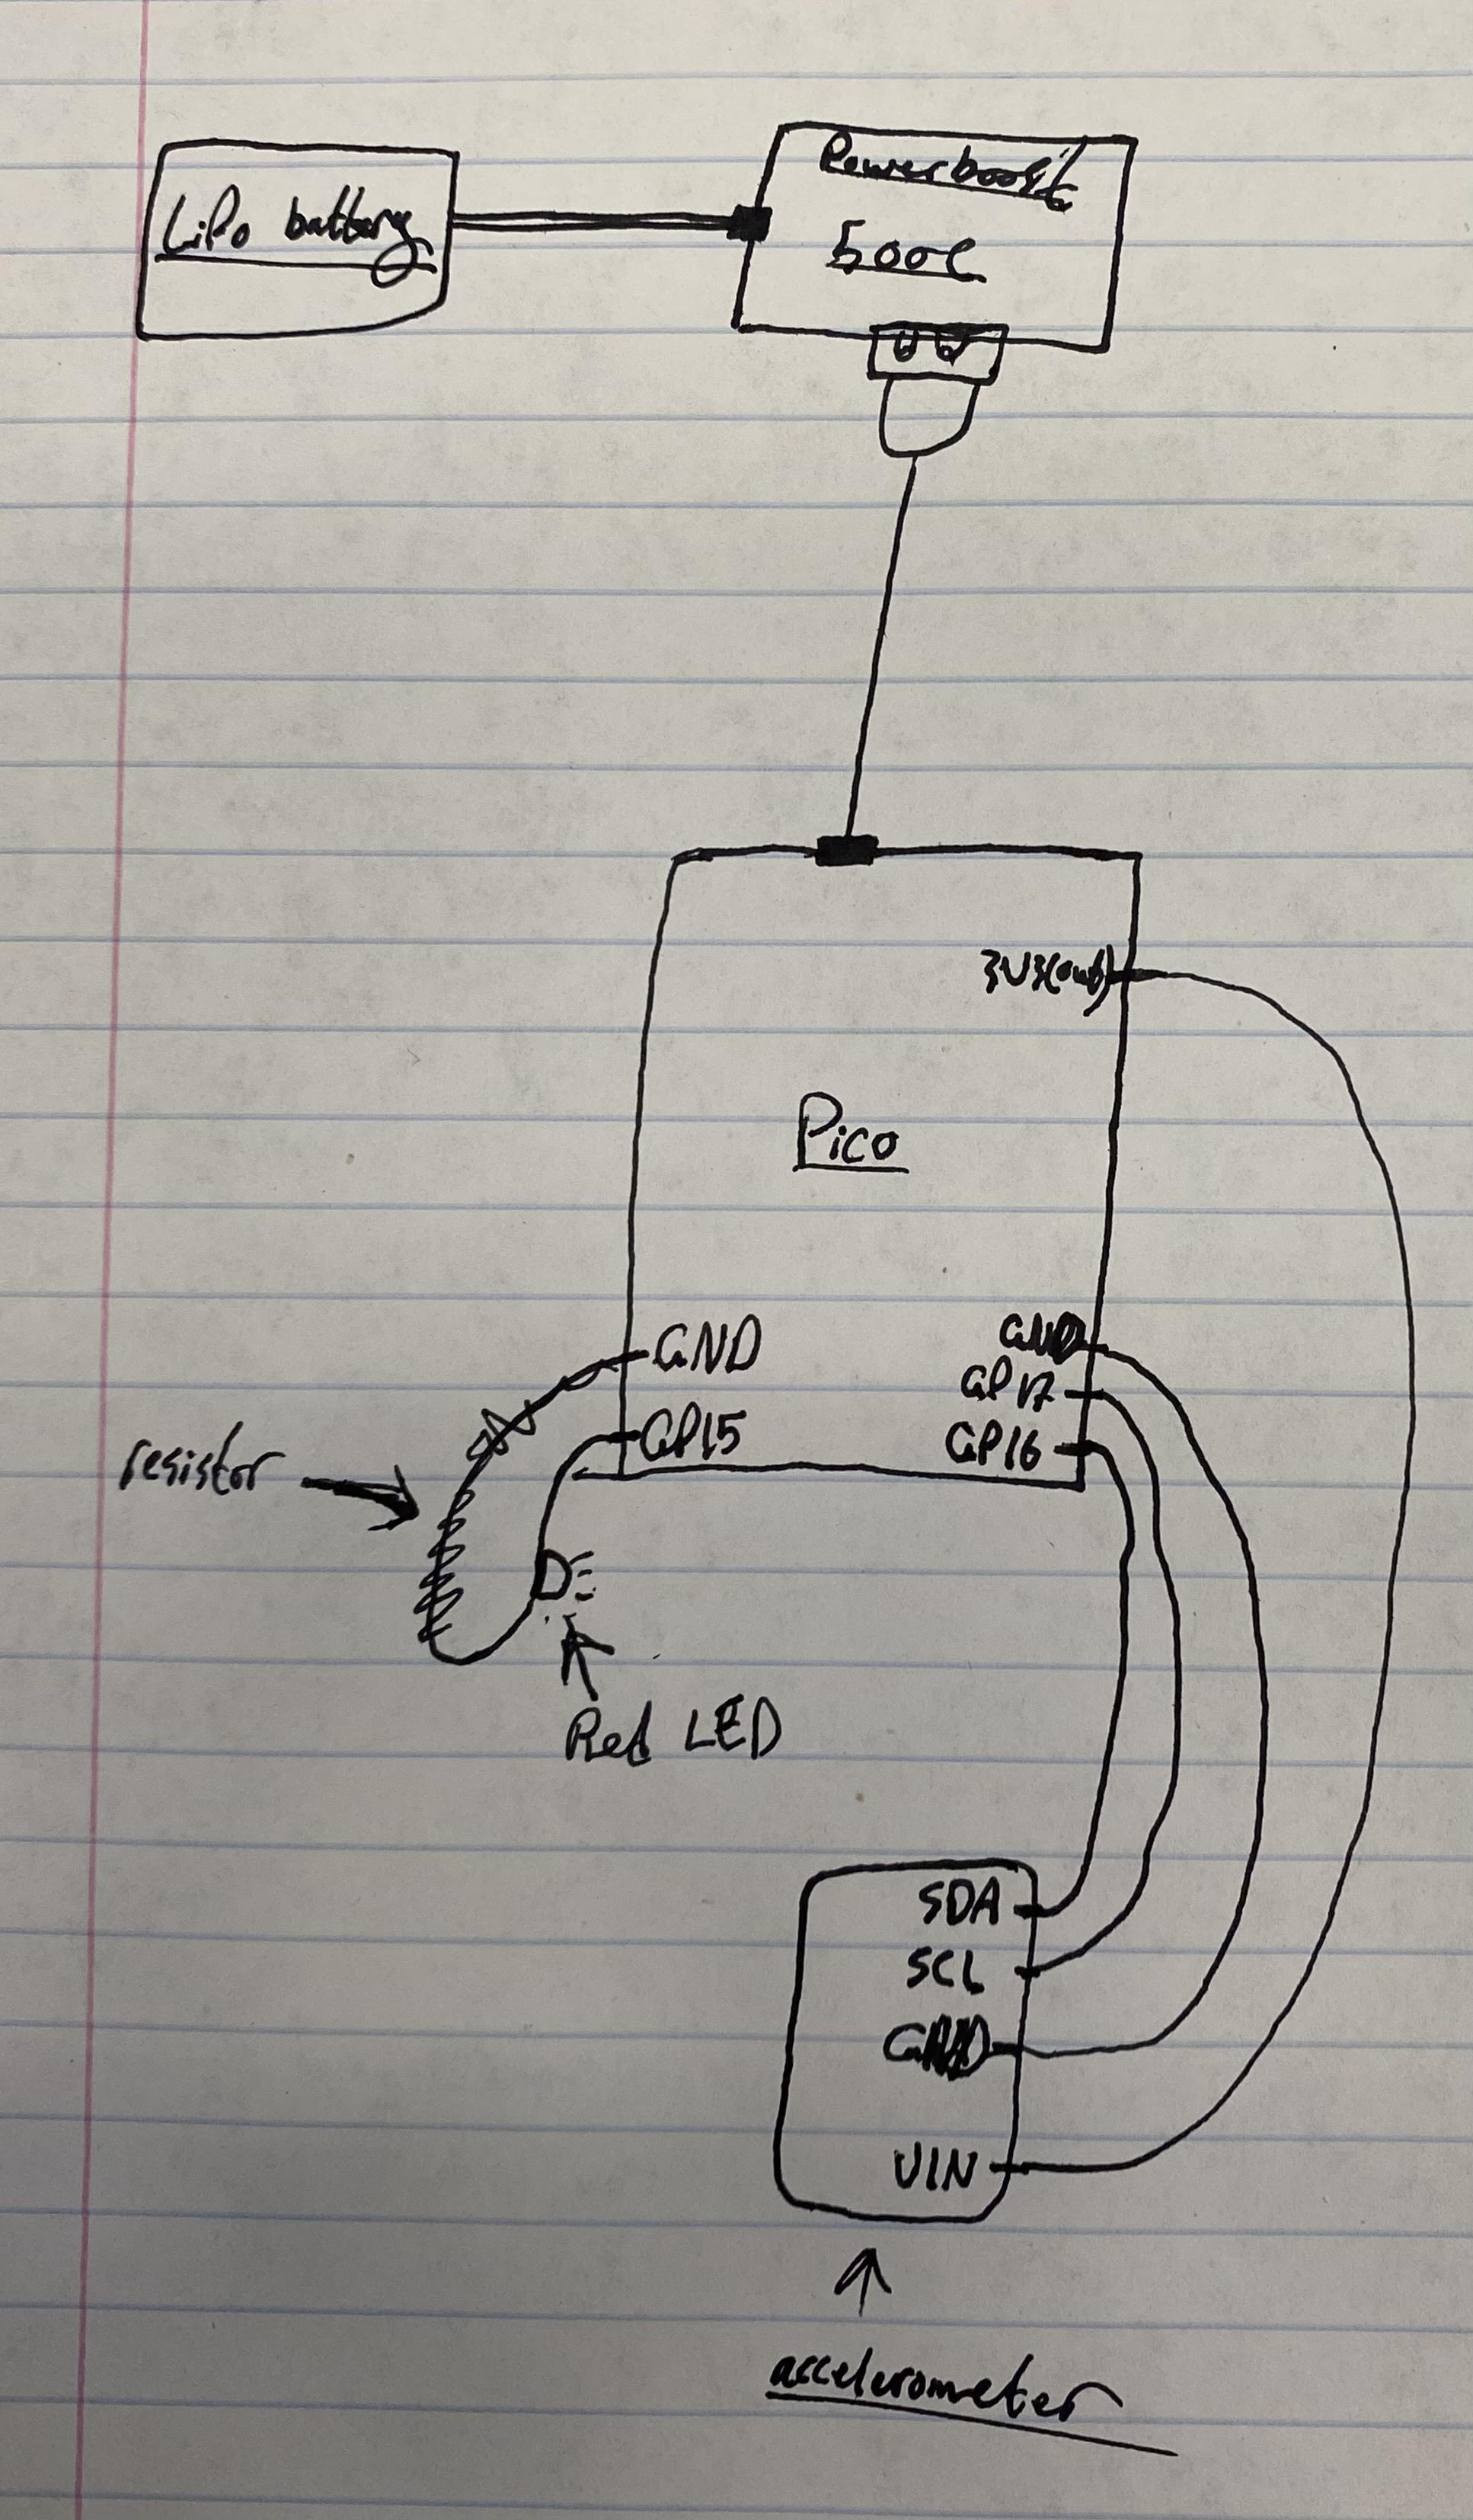 LiPo battery
Powerboost
500C
3V3(out)
Pico
GND
GND
GP17
GP15
GP16
resistor
Red LED
SDA
SCL
GND
VIN
accelerometer